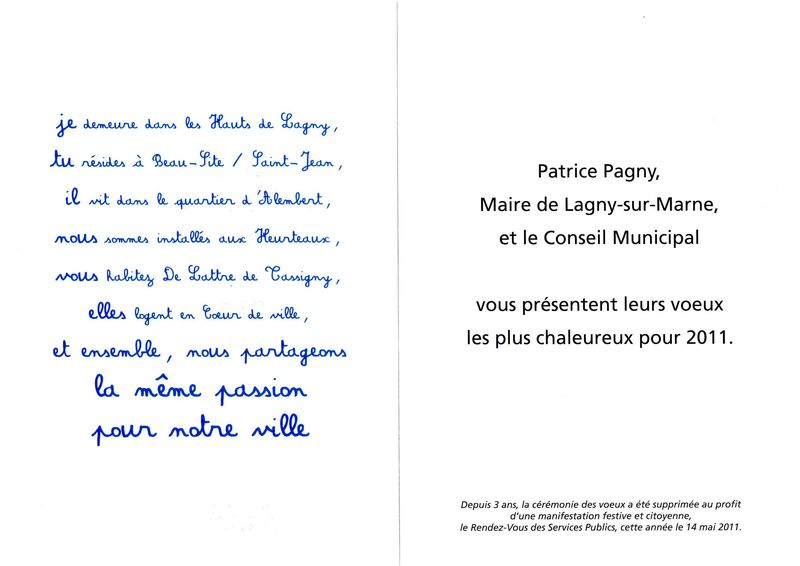 je demeure dans les Hauts de Lagny,
tu résides à Beau-Site / Saint-Jean,
il vit dans le quartier d'Alembert,
nous sommes installés aux Heurteaux,
vous habitez De Lattre de Tassigny,
elles logent en Coeur de ville,
et ensemble, nous partageons
la même passion
pour notre ville
Patrice Pagny,
Maire de Lagny-sur-Marne,
et le Conseil Municipal
vous présentent leurs voeux
les plus chaleureux pour 2011.
Depuis 3 ans, la cérémonie des voeux a été supprimée au profit
d'une manifestation festive et citoyenne,
le Rendez-Vous des Services Publics, cette année le 14 mai 2011.